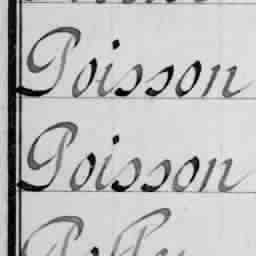 Poisson
Poisson